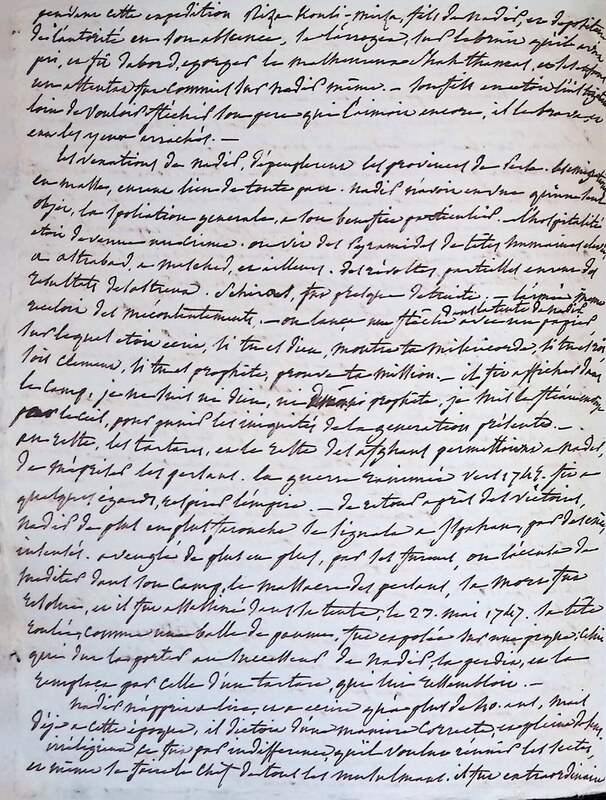 pendant cette expedition Riza Kouli-mirza, fils de nadir, et depositaire
de l'autorité en son absence, se l'arrogea, sur le bruit qu'il avoit
peri, et fit d'abord, egorger le malheureux Shah thamas,
un attentat fut commis sur nadir même. – son fils
loin de vouloir flechir son pere qui l'aimoit encore, il le brava, et
eut les yeux arrachés. –
les vexations de nadir, depeuplerent les provinces de Perse.
en masse, eurent lieu de toute part. nadir n'avoit en vue qu'un seul
objet, la spoliation generale, a son benefice particulier. l'hospitalité
etoit devenue un crime. on vit des Pyramides de têtes humaines
a astrabad, a mesched, et ailleurs. des révoltes, partielles eurent des
resultats desastreux. Schiraz, fut presque detruite. – l'armée, même
receloit des mécontentements. – on lança une flèche dans la tente de nadir avec un papier
sur lequel etoit ecrit, si tu es dieu, montre ta misericorde, si tu es roi,
sois clement, si tu es prophète, prouve ta mission. – il fit afficher dans
le camp, je ne suis ni dieu, ni prophète, je suis le fléau envoyé
par le ciel, pour punir les iniquités de la generation présente. –
au reste, les tartares, et le reste des afghans permettoient a nadir,
de mépriser les persans. la guerre terminée vers 1745. fut a
quelques egards, respirer l'empire – de retour après des victoires,
nadir de plus en plus farouche se signala a Ispahan, par des
intentés. aveugle de plus en plus, par ses fureurs, on l'accusa de
mediter dans son camp, le massacre des persans, sa mort fut
resolue, et il fut assassiné dans sa tente, le 27. mai 1747. sa tête
roulée, comme une balle de paume, fut exposée sur une pique. celui
qui dut la porter au successeur de nadir, la perdit, et la
remplaça par celle d'un tartare, qui lui ressembloit. –
nadir n'apprit a lire, et a ecrire qu'a plus de 40. ans, mais
déjà a cette époque, il dictoit d'une maniere correcte, et pleine de sens,
irréligieux, ce fut par indifference, qu'il voulut reunir les sectes,
et même se faire le chef de tous les musulmans. il fut extraordinaire